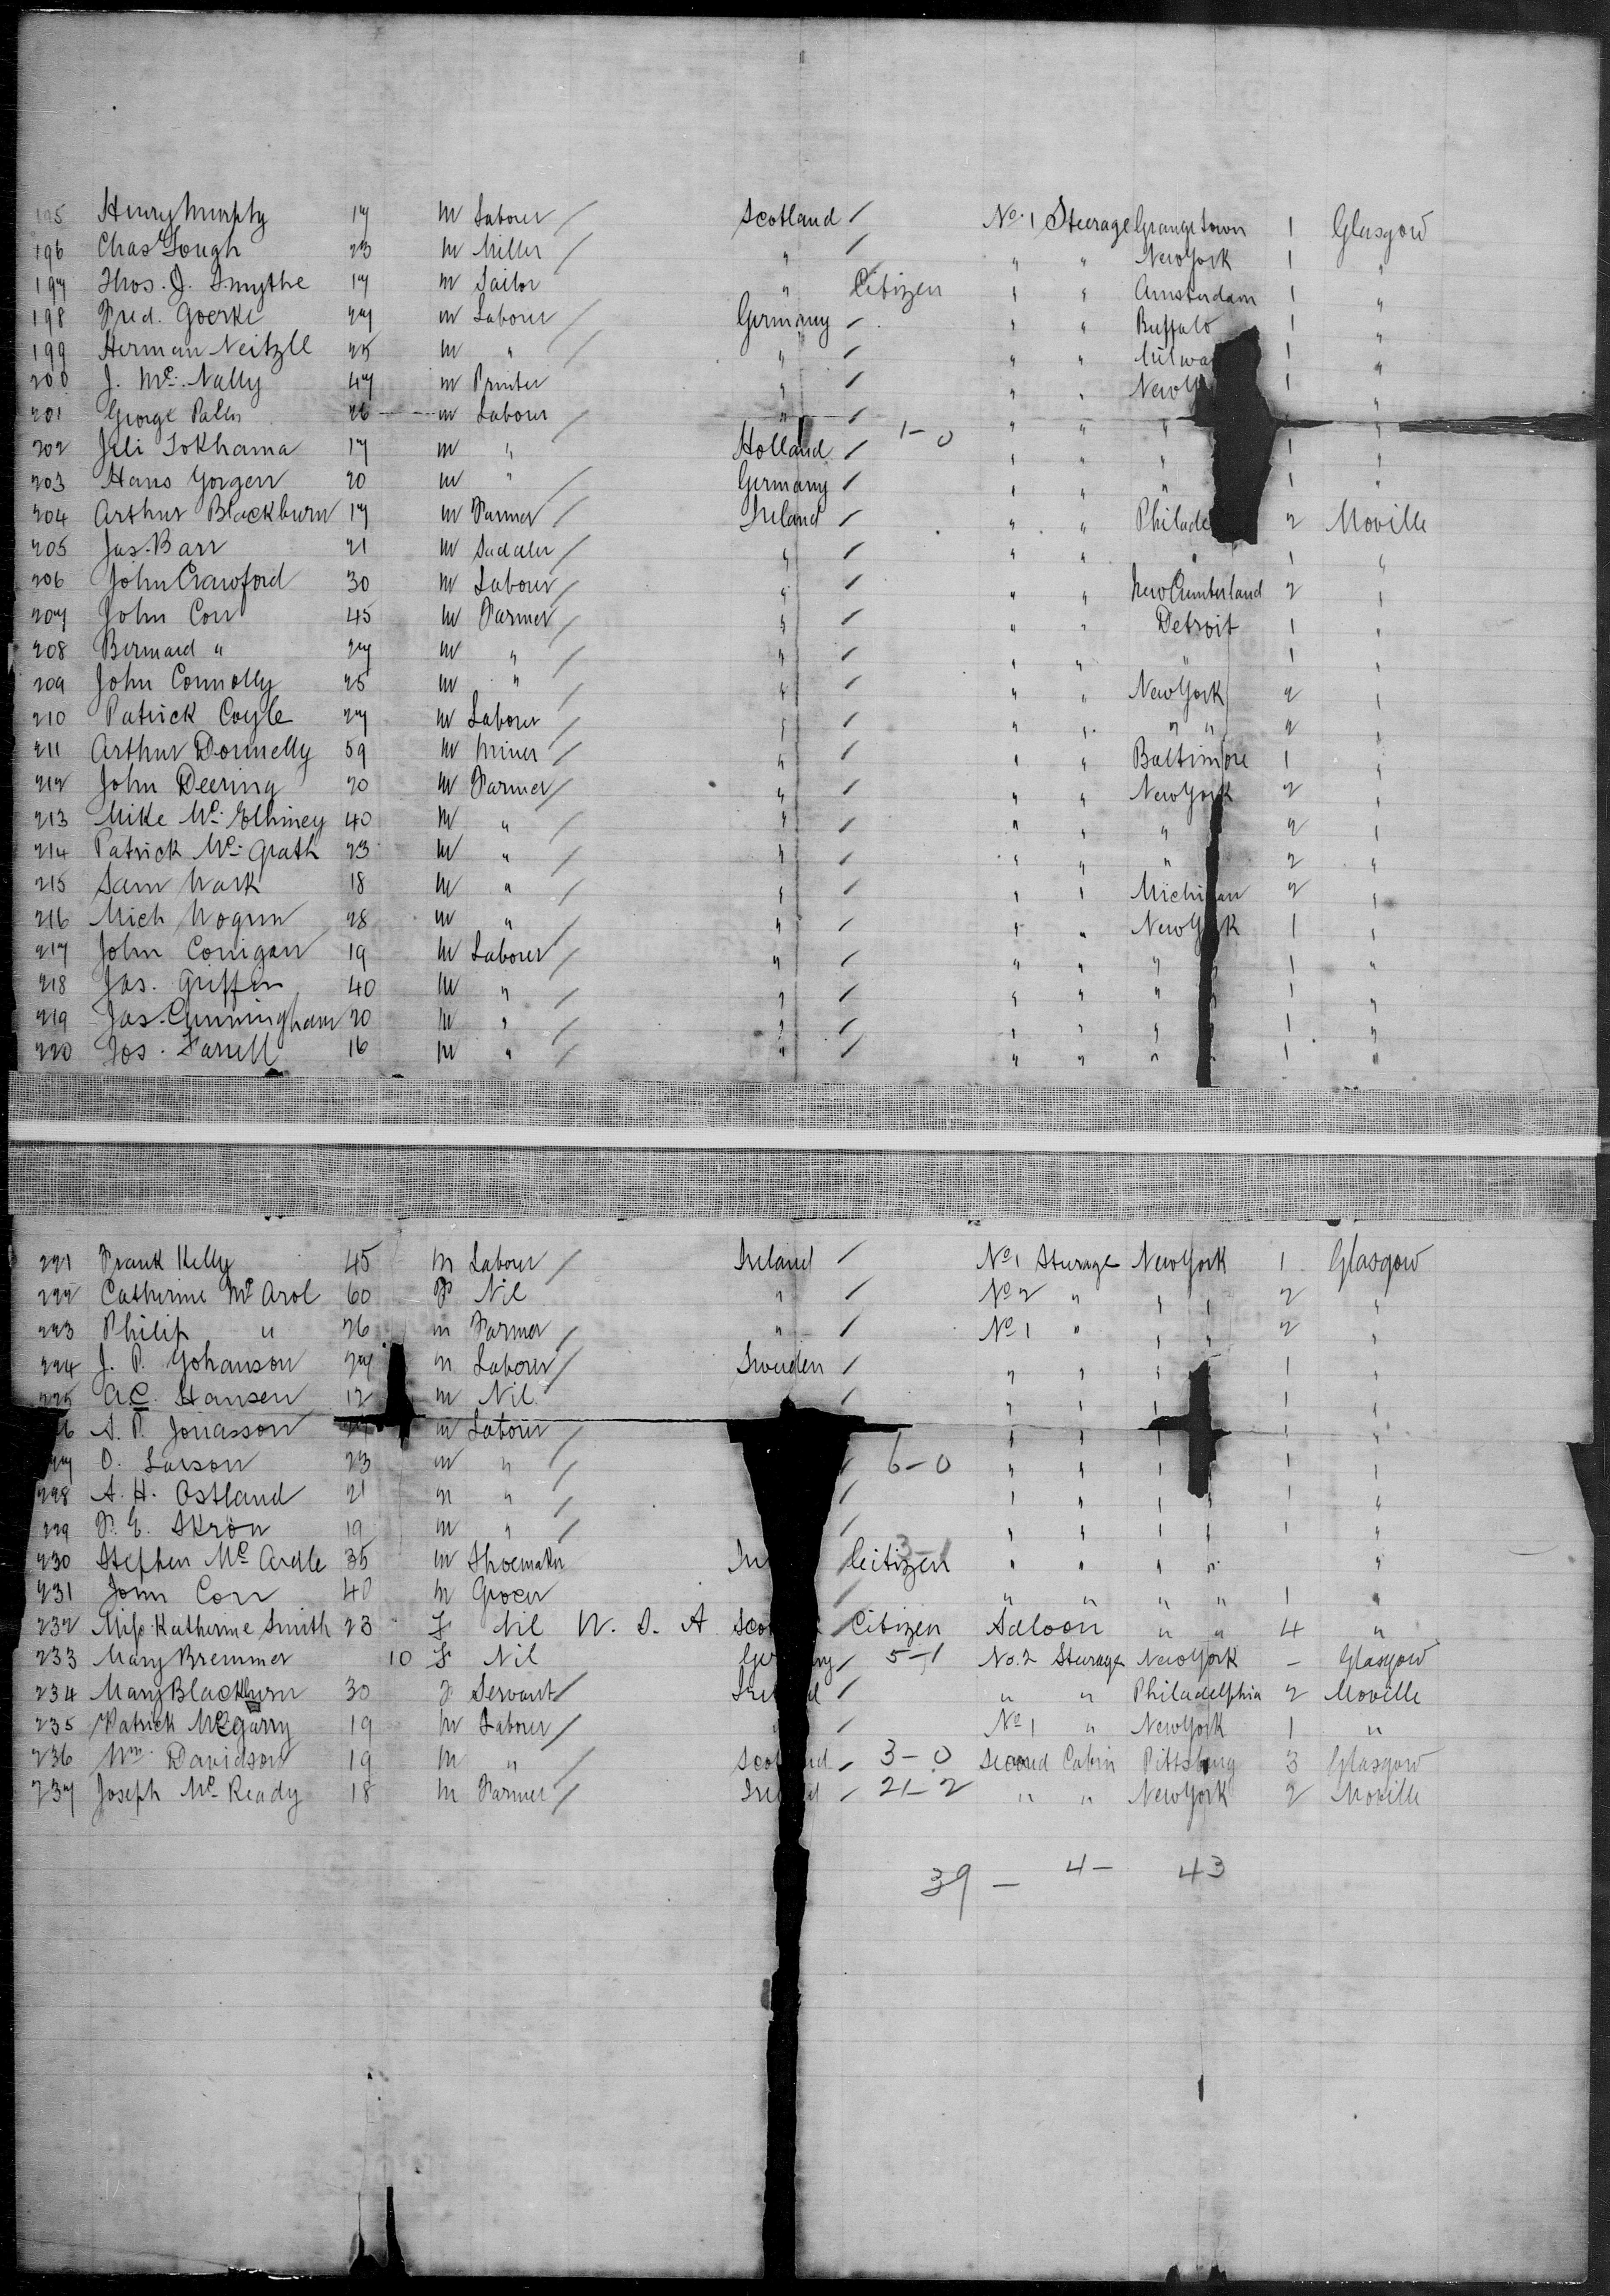 195 Henry Murphy 17 m Laborer / Scotland / No. 1 Steerage Grangetown 1 Glasgow
196 Chas Gough 23 m Miller / " / " " New York 1 "
197 Thos. J. Smythe 17 m Sailor " Citizen " " Amsterdam 1 "
198 Fred. Goerke 27 m Laborer / Germany / " " Buffalo 1 "
199 Herman Neitzle 25 m " / " / " " Milwa 1 "
200 J. Mc. Nally 47 m Printer " / " " New Y 1 "
201 George Paller 26 m Laborer / " / " " " "
202 Jeli Tokhama 17 m " Holland / 1-0 " " " 1 "
203 Hans Yorgen 20 m " / Germany / " " " 1 "
204 Arthur Blackburn 17 m Farmer / Ireland / " " Philade 2 Moville
205 Jas. Barr 21 m Saddler / " / " " " 1 "
206 John Crawford 30 m Laborer / " / " " New Cumberland 2 "
207 John Corr 45 m Farmer / " / " " Detroit 1 "
208 Bernard " 27 m " / " / " " " 1 "
209 John Connolly 25 m " / " / " " New York 2 "
210 Patrick Coyle 27 m Laborer / " / " " " " 2 "
211 Arthur Donnelly 59 m Miner / " / " " Baltimore 1 "
212 John Deering 20 m Farmer / " / " " New York 2 "
213 Mike Mc. Elhiney 40 m " / " / " " " 2 "
214 Patrick Mc. Grath 23 m " / " / " " " 2 "
215 Sam Wark 18 m " / " / " " Michigan 2 "
216 Mich Mogun 28 m " / " / " " New York 1 "
217 John Corrigan 19 m Laborer / " / " " " " 1 "
218 Jas. Griffin 40 m " / " / " " " " 1 "
219 Jas. Cunningham 20 m " / " / " " " " 1 "
220 Jos. Farrell 16 m " / " / " " " " 1 "
221 Frank Kelly 45 m Laborer / Ireland / No 1 Steerage New York 1 Glasgow
222 Catherine Mc Arol 60 F Nil " / No 2 " " " 2 "
223 Philip " 26 m Farmer / " / No 1 " " " 2 "
224 J. P. Yohanson 27 m Laborer / Sweden / " " " " 1 "
225 A.C. Hansen 12 m Nil / " " " " 1 "
6 A. P. Jonasson m Laborer / " " " " 1 "
27 O. Larson 23 m " / / 6-0 " " " " 1 "
228 A. H. Ostland 21 m " / / " " " " 1 "
229 P. E. Skrön 19 m " / / " " " " 1 "
230 Stephen Mc Ardle 35 m Shoemaker Ire Citizen " " " " "
231 John Corr 40 m Grocer / " " " " 1 "
232 Miss Katherine Smith 23 F Nil U. S. A Sco Citizen Saloon " " 4 "
233 Mary Bremmer 10 F Nil Ger ny / 5-1 No. 2 Steerage New York - Glasgow
234 Mary Blackburn 30 F Servant / Ire d / " " Philadelphia 2 Moville
235 Patrick McGarry 19 m Laborer / " / No 1 " New York 1 "
236 Wm. Davidson 19 m " / Scot nd / 3-0 Second Cabin Pittsburg 3 Glasgow
237 Joseph Mc Ready 18 m Farmer / Ire d / 21-2 " " New York 2 Moville
39 - 4 - 43